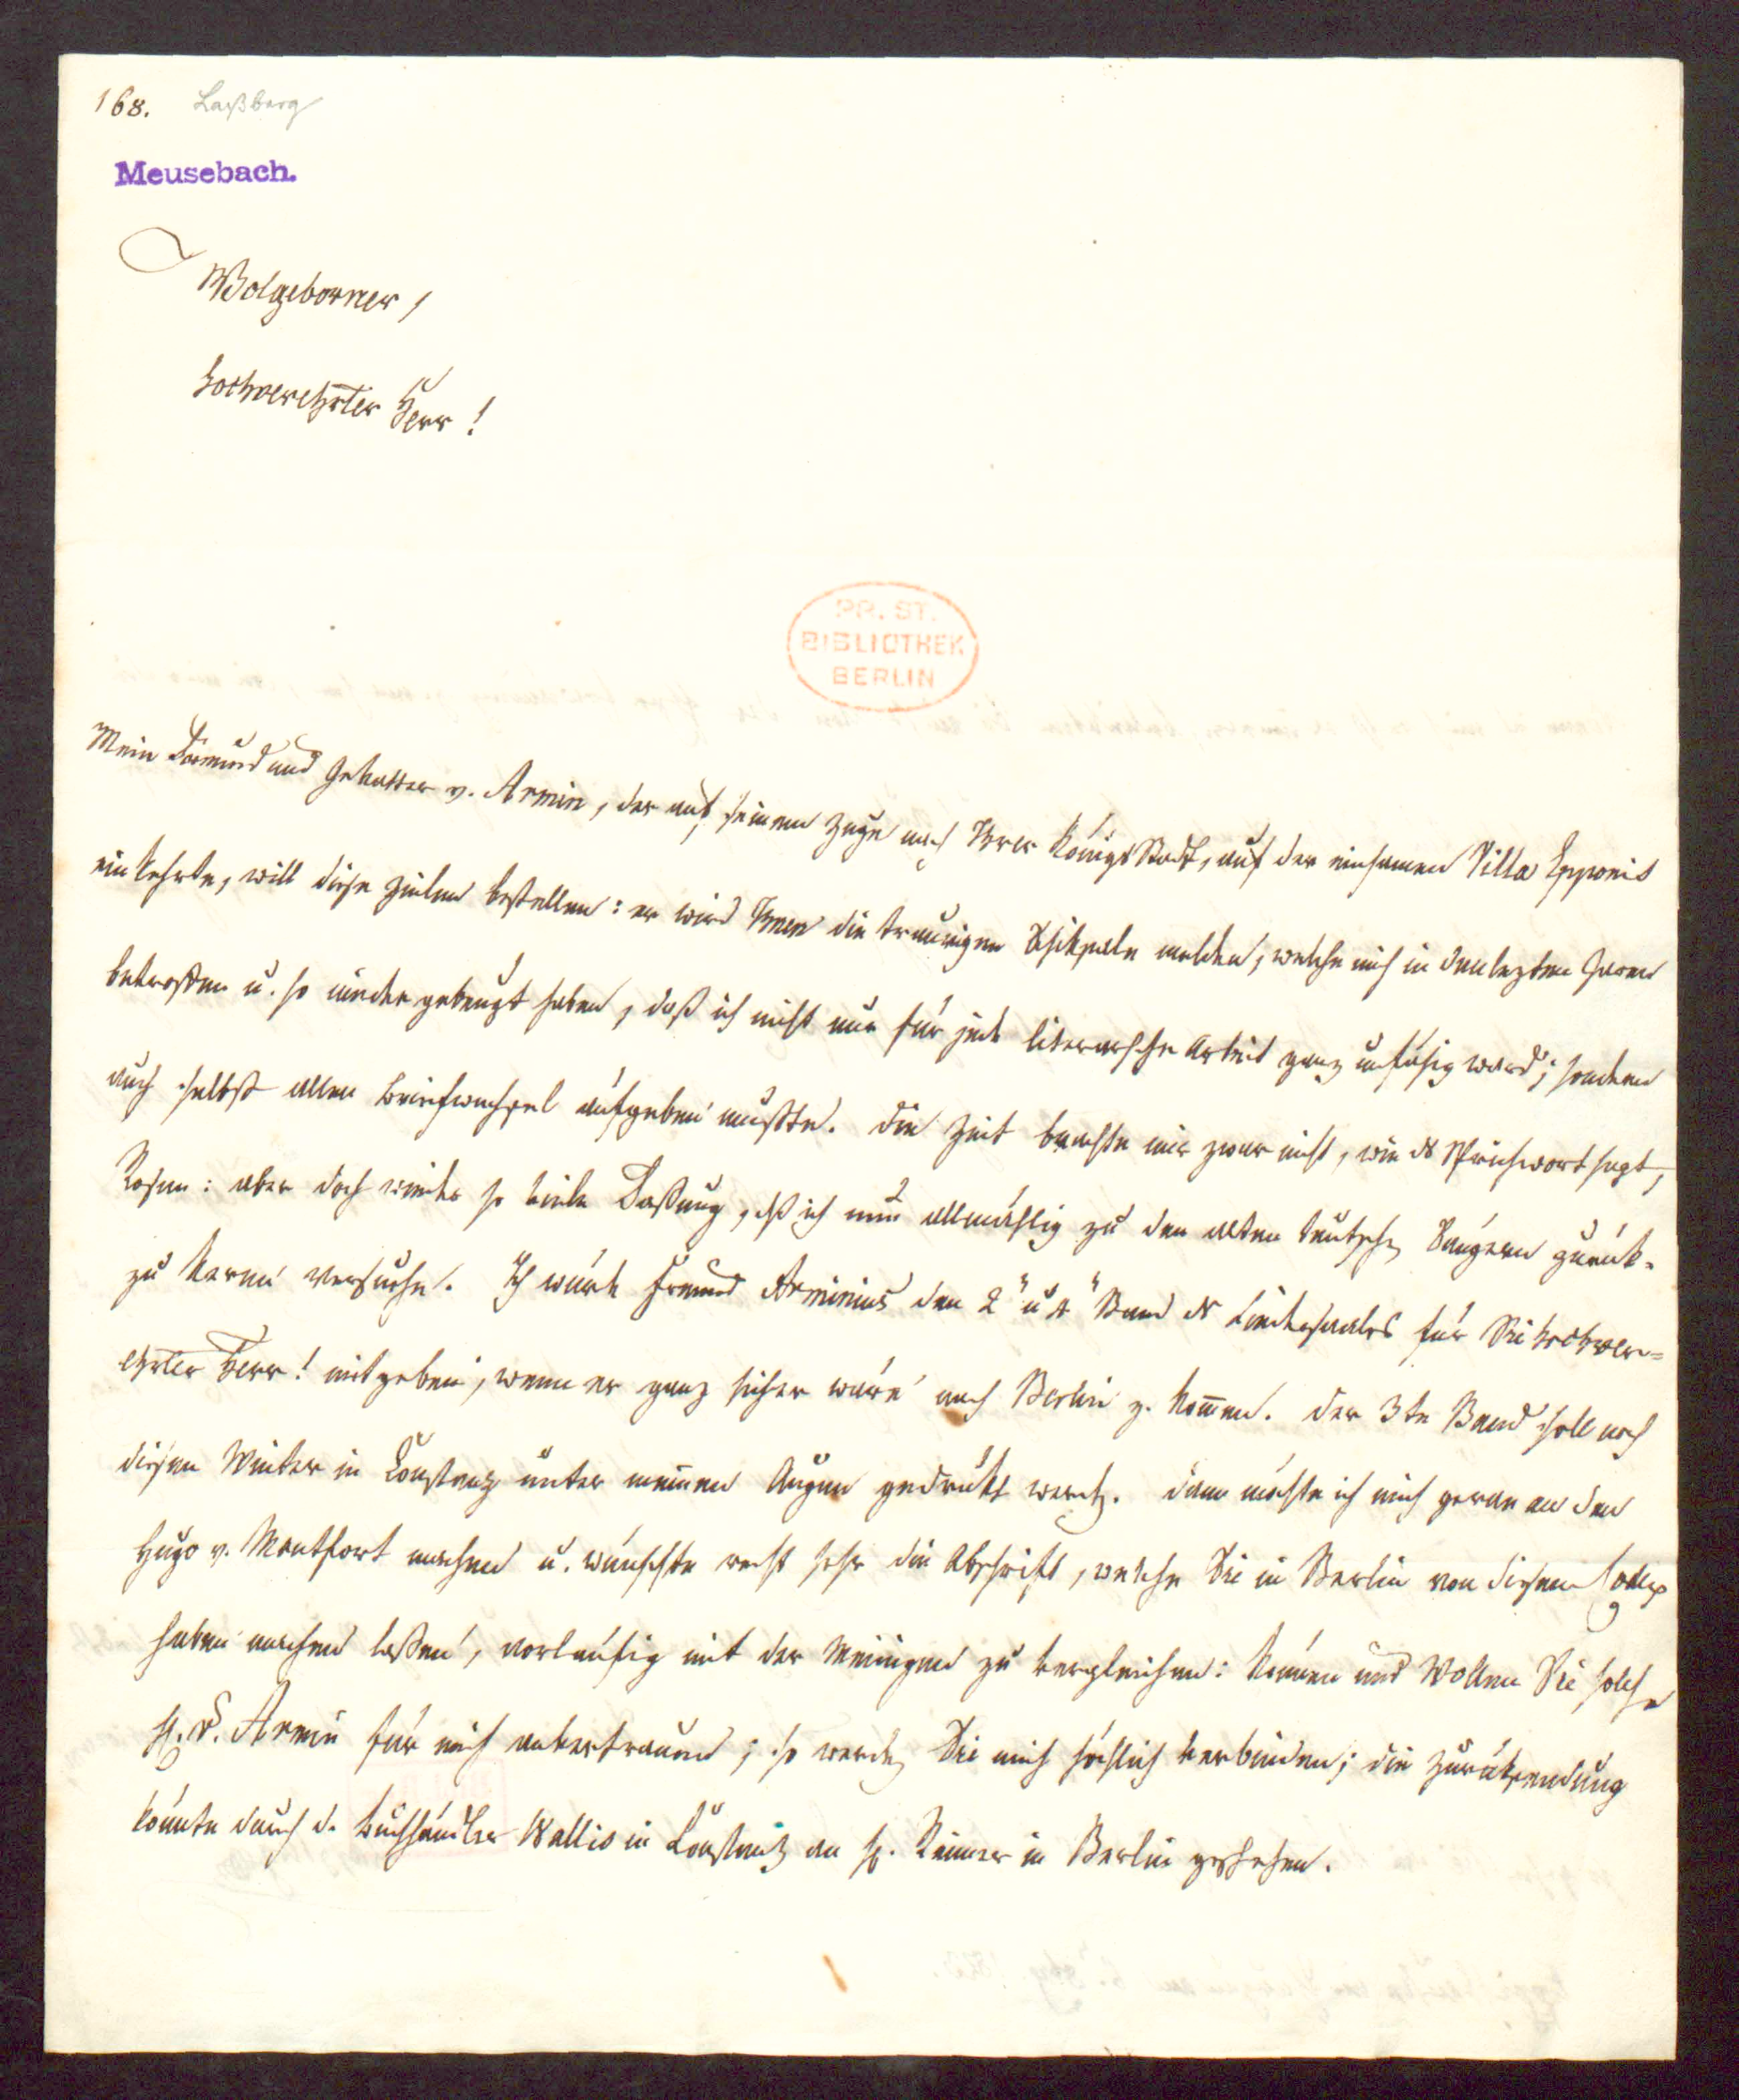 168. Laßberg
Meusebach.
Wolgeborner,
hochverehrter Herr!
PR. ST.
BIBLIOTHEK
BERLIN
Mein Freund und Gevatter v. Armin, der auf seinem Zuge nach Irer KönigsStadt, auf der einsamen Villa Epponis
einkehrte, will dise Zeilen bestellen: er wird Inen die traurigen Schiksale melden, welche mich in den lezten Jaren
betroffen u. so nieder gebeugt haben, daß ich nicht nur für jede literarische Arbeit ganz unfähig ward; sondern
auch selbst allen Briefwechsel aufgeben mußte. Die Zeit brachte mir zwar nicht, wie ds Sprichwort sagt,
Rosen: aber doch wieder so viele Faßung, dß ich nun allmählig zu den alten teutschen Sängern zurük-
zu keren versuche. Ich würde Freund Arminius den 2" u 4" Band ds Liedersaales für Sie hochver=
ehrter Herr! mitgeben, wenn er ganz sicher wäre nach Berlin z. komen. Der 3te Band soll noch
disen Winter in Constanz unter meinen Augen gedrukt werden. dann möchte ich mich gerne an den
Hugo v. Montfort machen u. wünschte recht sehr die Abschrift, welche Sie in Berlin von disem Codex
haben machen laßen, vorläufig mit der Meinigen zu vergleichen: können und wollen Sie solche
H. v. Armin für mich anvertrauen; so werden Sie mich höchlich verbinden; die Zurüksendung
könnte durch d. Buchhändler Wallis in Constanz an H. Reimer in Berlin geschehen.